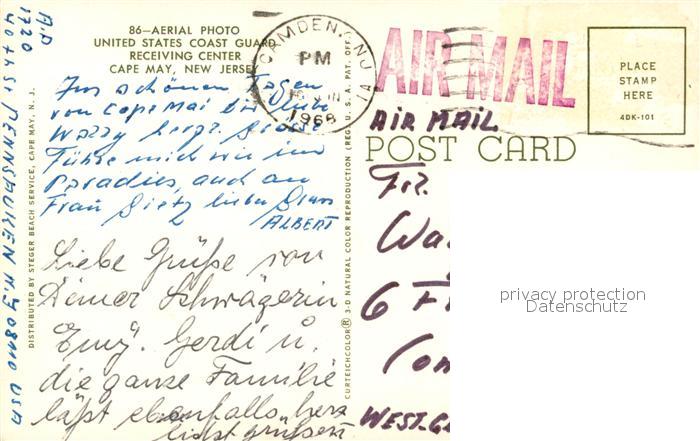 86—AERIAL PHOTO
UNITED STATES COAST GUARD
RECEIVING CENTER
CAPE MAY, NEW JERSEY
schönen Tagen
von Cape Mai
Grüße
Fühle mich wie im
Paradies, auch an
Frau Dietz lieben Gruss
ALBERT
Liebe Grüße von
Deiner Schwägerin
Emy. Gerdi u.
die ganze Familie
läßt ebenfalls herz
lichst grüßen
A.D
1720
40th ST PENNSAUKEN N.J 08110 USA
DISTRIBUTED BY STEGER BEACH SERVICE, CAPE MAY, N. J.
CURTEICHCOLOR® 3-D NATURAL COLOR REPRODUCTION (REG. U.S.A. PAT. OFF.)
CAMDEN, NJ
PM
1968
AIR MAIL
PLACE
STAMP
HERE
4DK-101
AIR MAIL
POST CARD
Fr.
Wa
6 F
Con
WEST. G
privacy protection
Datenschutz